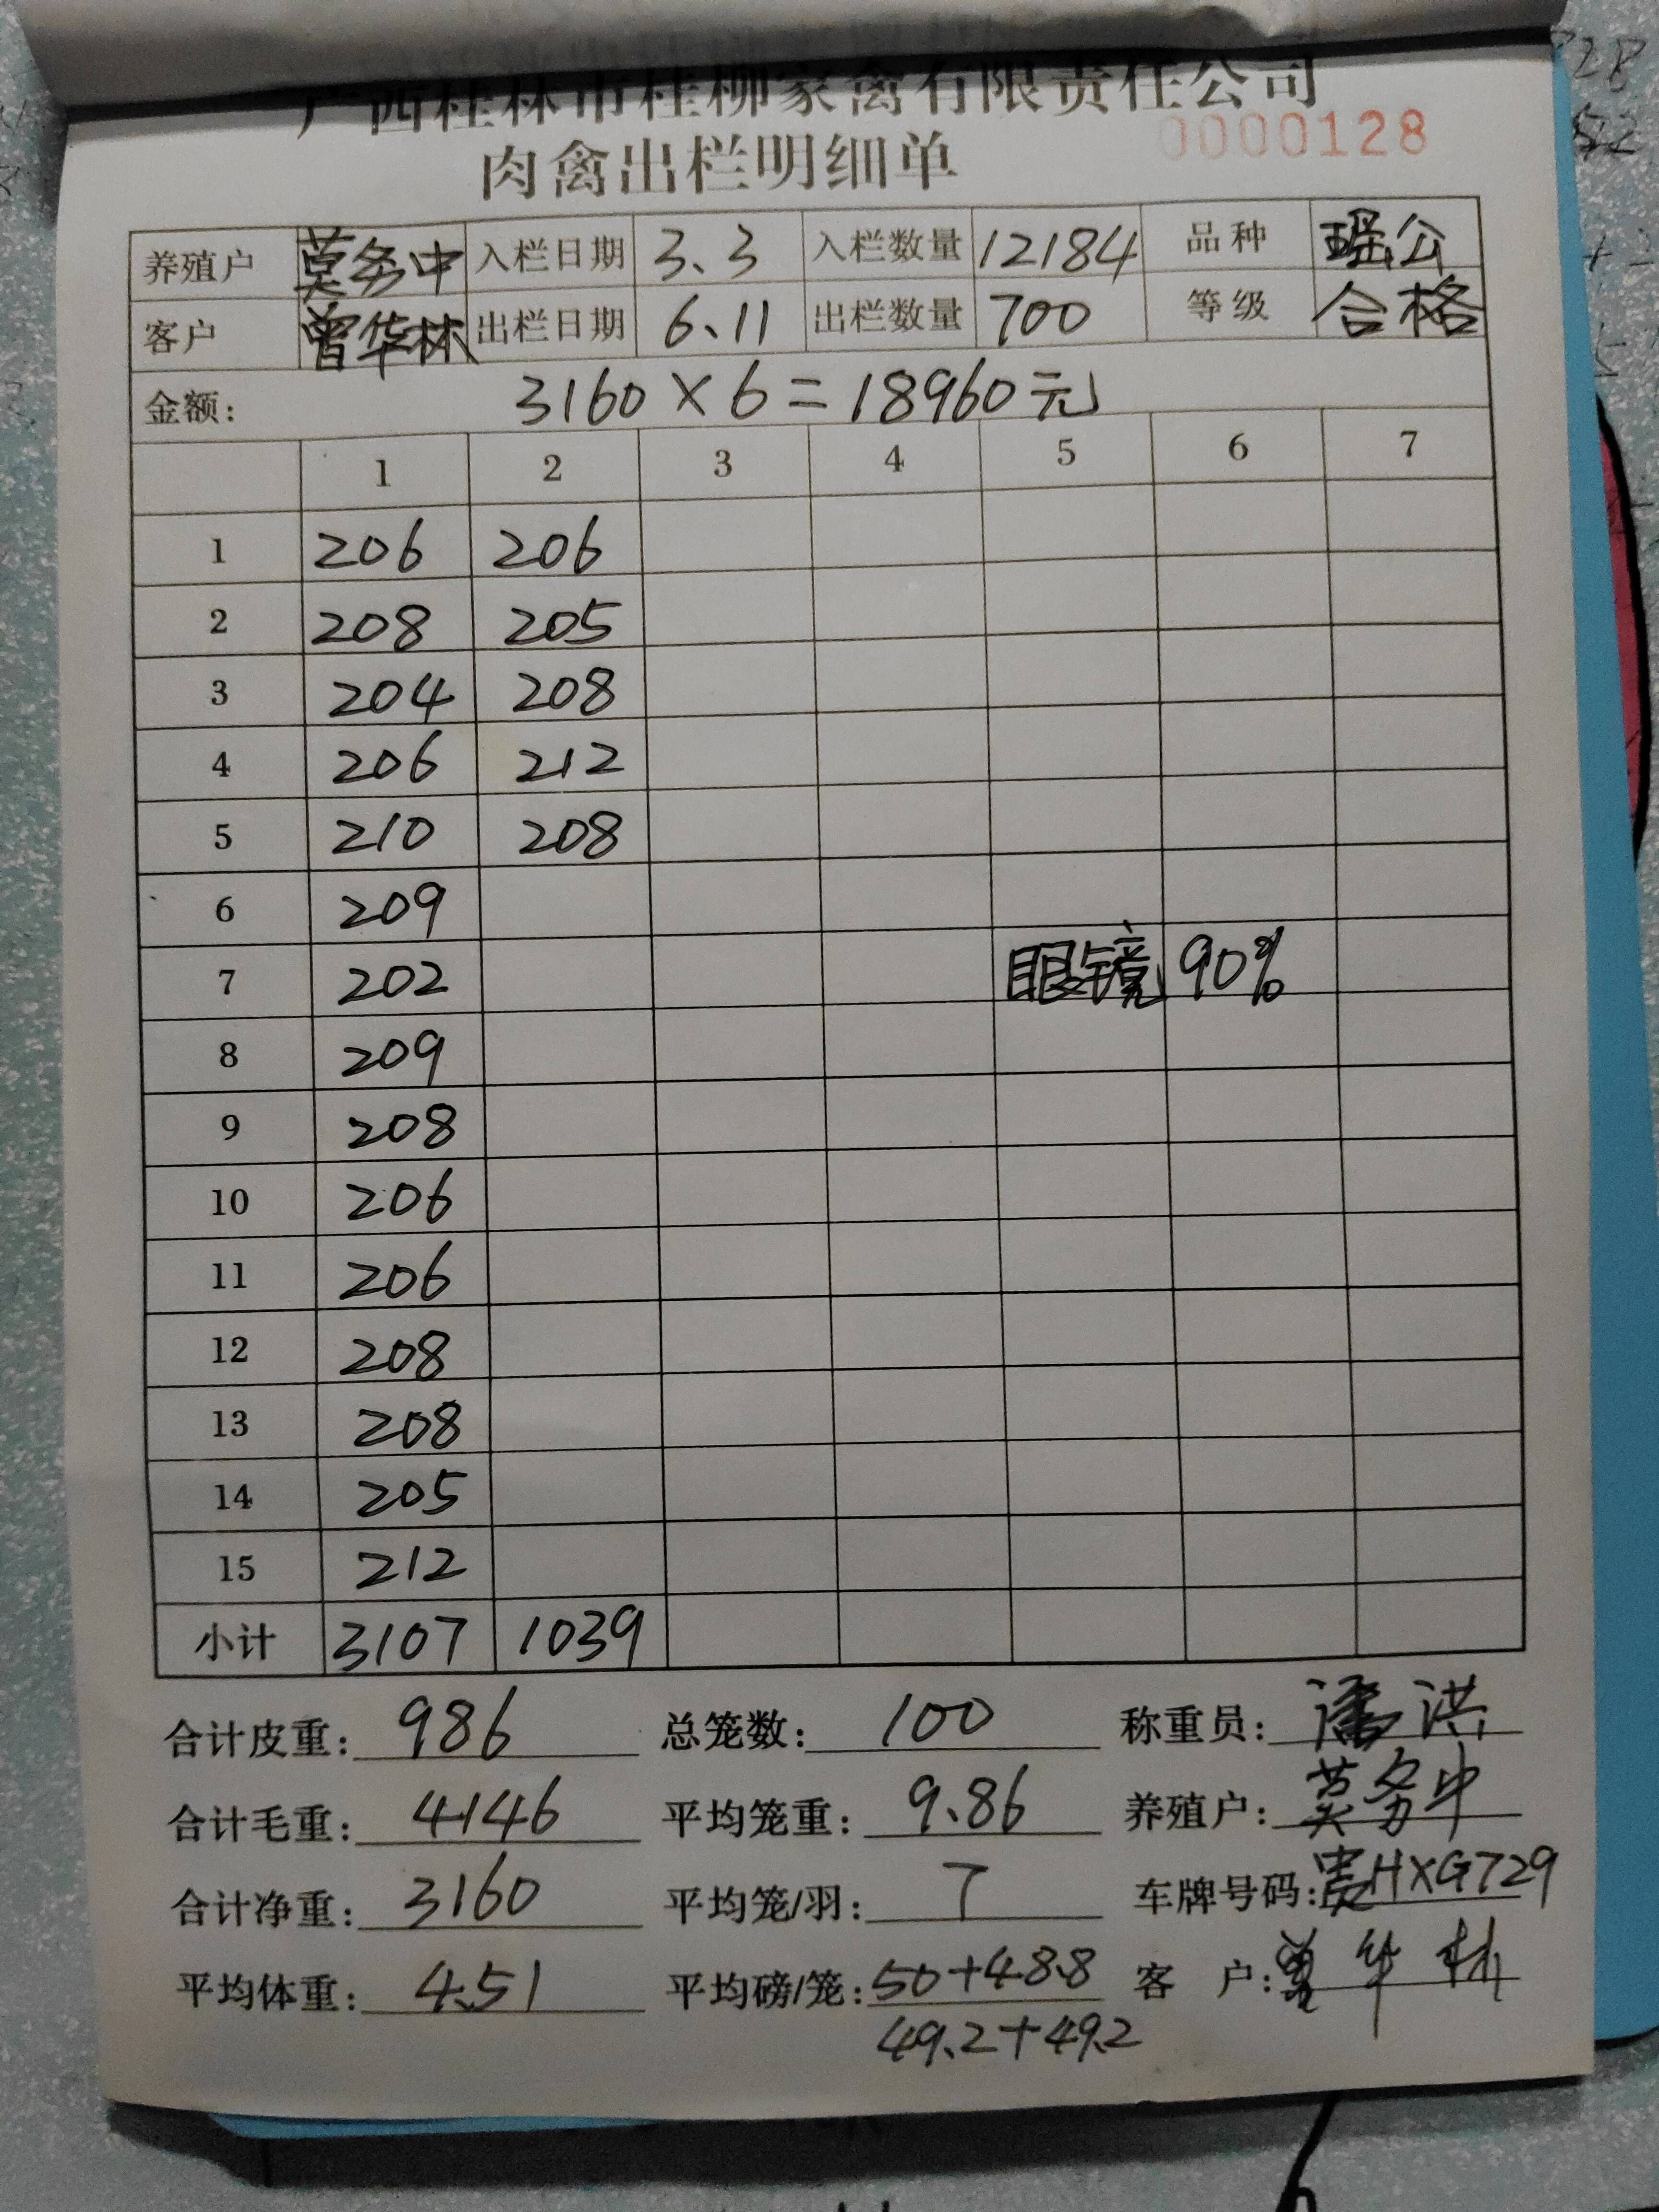 广西桂林市桂柳家禽有限责任公司
肉禽出栏明细单 0000128
养殖户 莫务中 入栏日期 3.3 入栏数量 12184 品种 瑶公
客户 曾华林 出栏日期 6.11 出栏数量 700 等级 合格
金额: 3160×6=18960元
1 2 3 4 5 6 7
1 206 206
2 208 205
3 204 208
4 206 212
5 210 208
6 209
7 202 眼镜 90%
8 209
9 208
10 206
11 206
12 208
13 208
14 205
15 212
小计 3107 1039
合计皮重: 986 总笼数: 100 称重员: 潘洪
合计毛重: 4146 平均笼重: 9.86 养殖户: 莫务中
合计净重: 3160 平均笼/羽: 7 车牌号码: 贵HXG729
平均体重: 4.51 平均磅/笼: 50+48.8 客 户: 曾华林
49.2+49.2